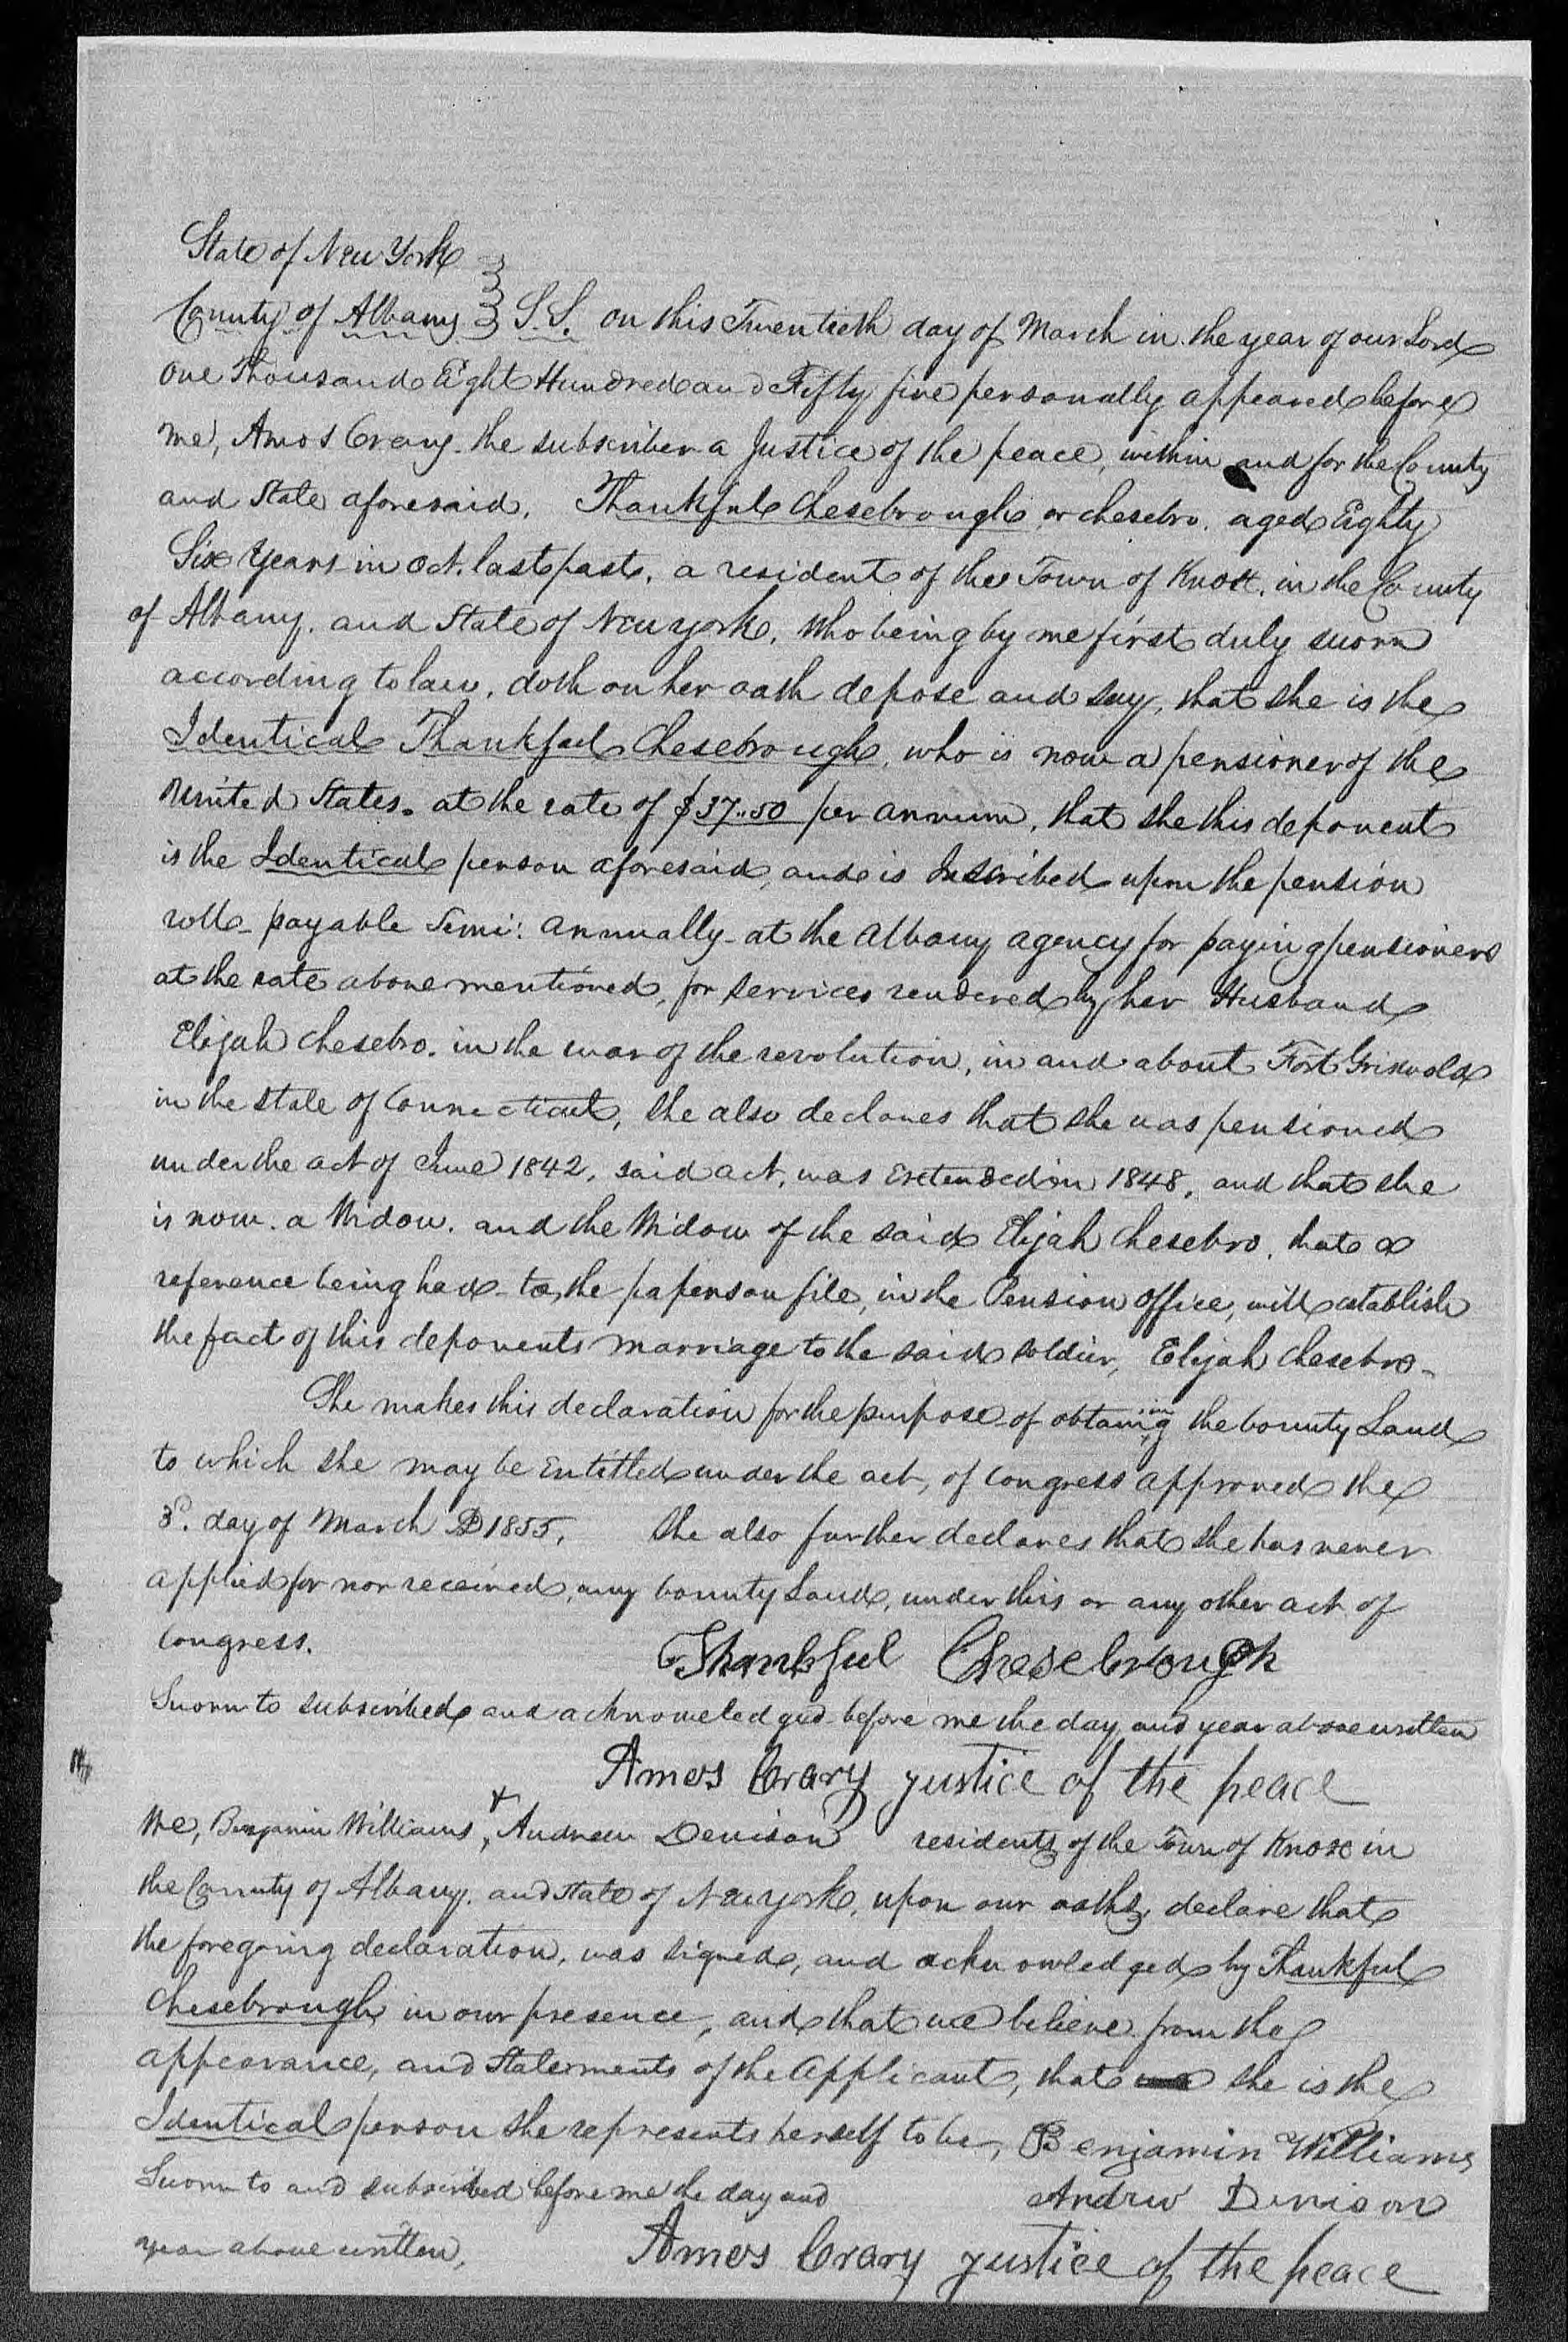 State of New York
County of Albany } S.S. on this Twentieth day of March in the year of our Lord
One Thousand Eight Hundred and Fifty five personally appeared before
me, Amos Crary the subscriber a Justice of the peace, within and for the County
and State aforesaid. Thankful Chesebrough or Chesebro. aged Eighty
Six Years in Oct. last past, a resident of the Town of Knox, in the County
of Albany. and State of New york, Who being by me first duly sworn
according to law, doth on her oath depose and say, that she is the
Identical Thankful Chesebrough, who is now a pensioner of the
United States. at the rate of $37..50 per annum, that she this deponent
is the Identical person aforesaid, and is Inscribed upon the pension
roll - payable Semi: annually - at the Albany agency for paying pensioners
at the rate above mentioned, for services rendered by her Husband
Elijah Chesebro. in the war of the revolution, in and about Fort Griswold
in the state of Connecticut, She also declares that she was pensioned
under the act of June 1842, said act, was extended in 1848, and that she
is now. a Widow. and the Widow of the said Elijah Chesebro, that a
reference being had to, the papers on file, in the Pension office, will establish
the fact of this deponents marriage to the said soldier, Elijah Chesebro -
She makes this declaration for the purpose of obtaining the bounty Land
to which she may be Entitled under the act, of Congress approved the
3d. day of March AD 1855, She also further declares that she has never
applied for nor received, any bounty Land, under this or any other act of
Congress.
Thankful Chesebrough
Sworn to subscribed and acknoweledged before me the day and year above written
Amos Crary justice of the peace
We, Benjamin Williams, + Andrew Denison residents of the Town of Knox in
the County of Albany. and State of New york, upon our oaths, declare that
the foregoing declaration, was signed, and acknowledged by Thankful
Chesebrough in our presence, and that we believe from the
appearance, and Statements of the Applicant, that she is the
Identical person she represents herself to be, Benjamin Williams
Sworn to and subscribed before me the day and
Andrew Denison
year above written,
Amos Crary justice of the peace